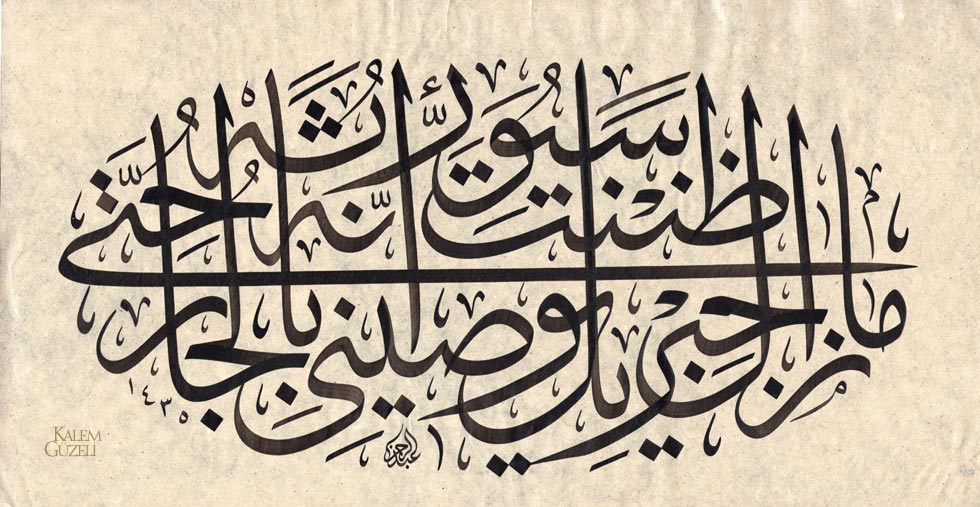 ما زال جبريل يوصيني بالجار حتى ظننت أنه سيورثه
١٤٣٥
KALEM
GÜZELİ